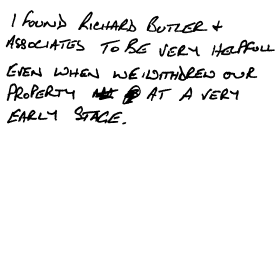 I FOUND RICHARD BUTLER +
ASSOCIATES TO BE VERY HELPFULL
EVEN WHEN WE WITHDREW OUR
PROPERTY AT A VERY
EARLY STAGE.